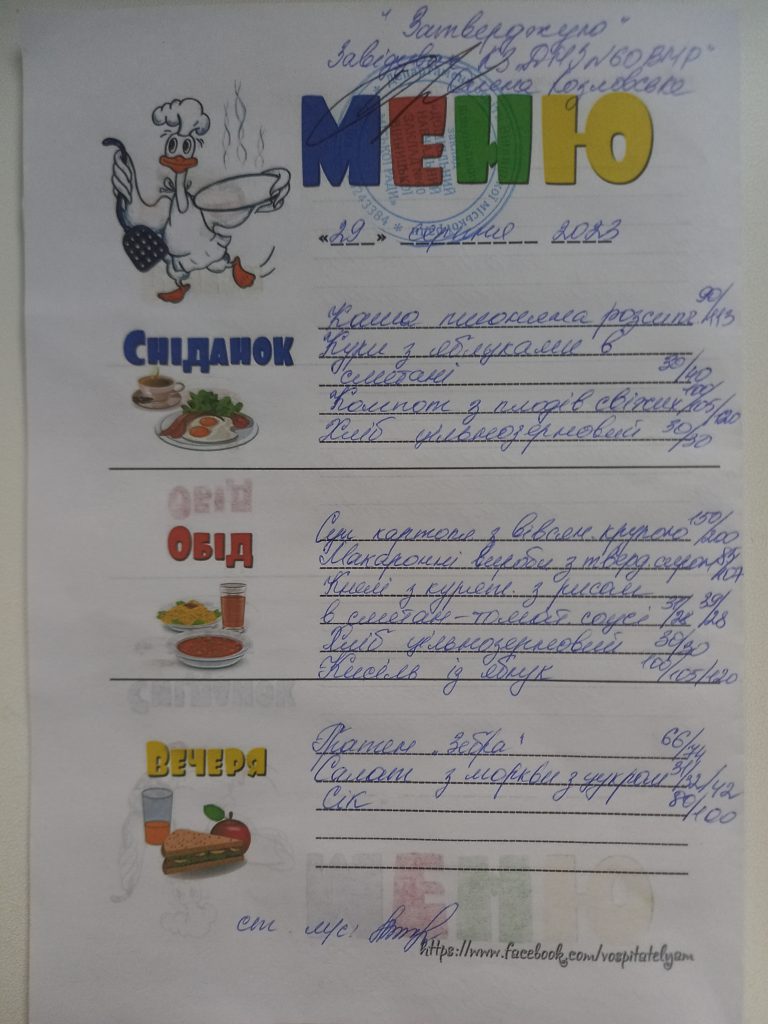 "Затверджую"
Завідувач КЗ „ДНЗ №60 ВМР"
Олена Козловська
МЕНЮ
«29» серпня 2023
СНІДАНОК
Каша пшоняна розсипч 90/113
Кури з яблуками в
сметані 30/40
Компот з плодів свіжих 100/105/120
Хліб цільнозерновий 30/30
ОБІД
Суп картопл з вівсян. крупою 150/200
Макаронні вироби з тверд сиром 85/107
Кнелі з курят. з рисом
в сметан-томат соусі /28 39/28
Хліб цільнозерновий 30/30
Кисіль із яблук 100/105/120
ВЕЧЕРЯ
„Зебра" 66/74
Салат з моркви з цукром 31/32/42
Сік 80/100
ст. м/с:
https://www.facebook.com/vospitatelyam